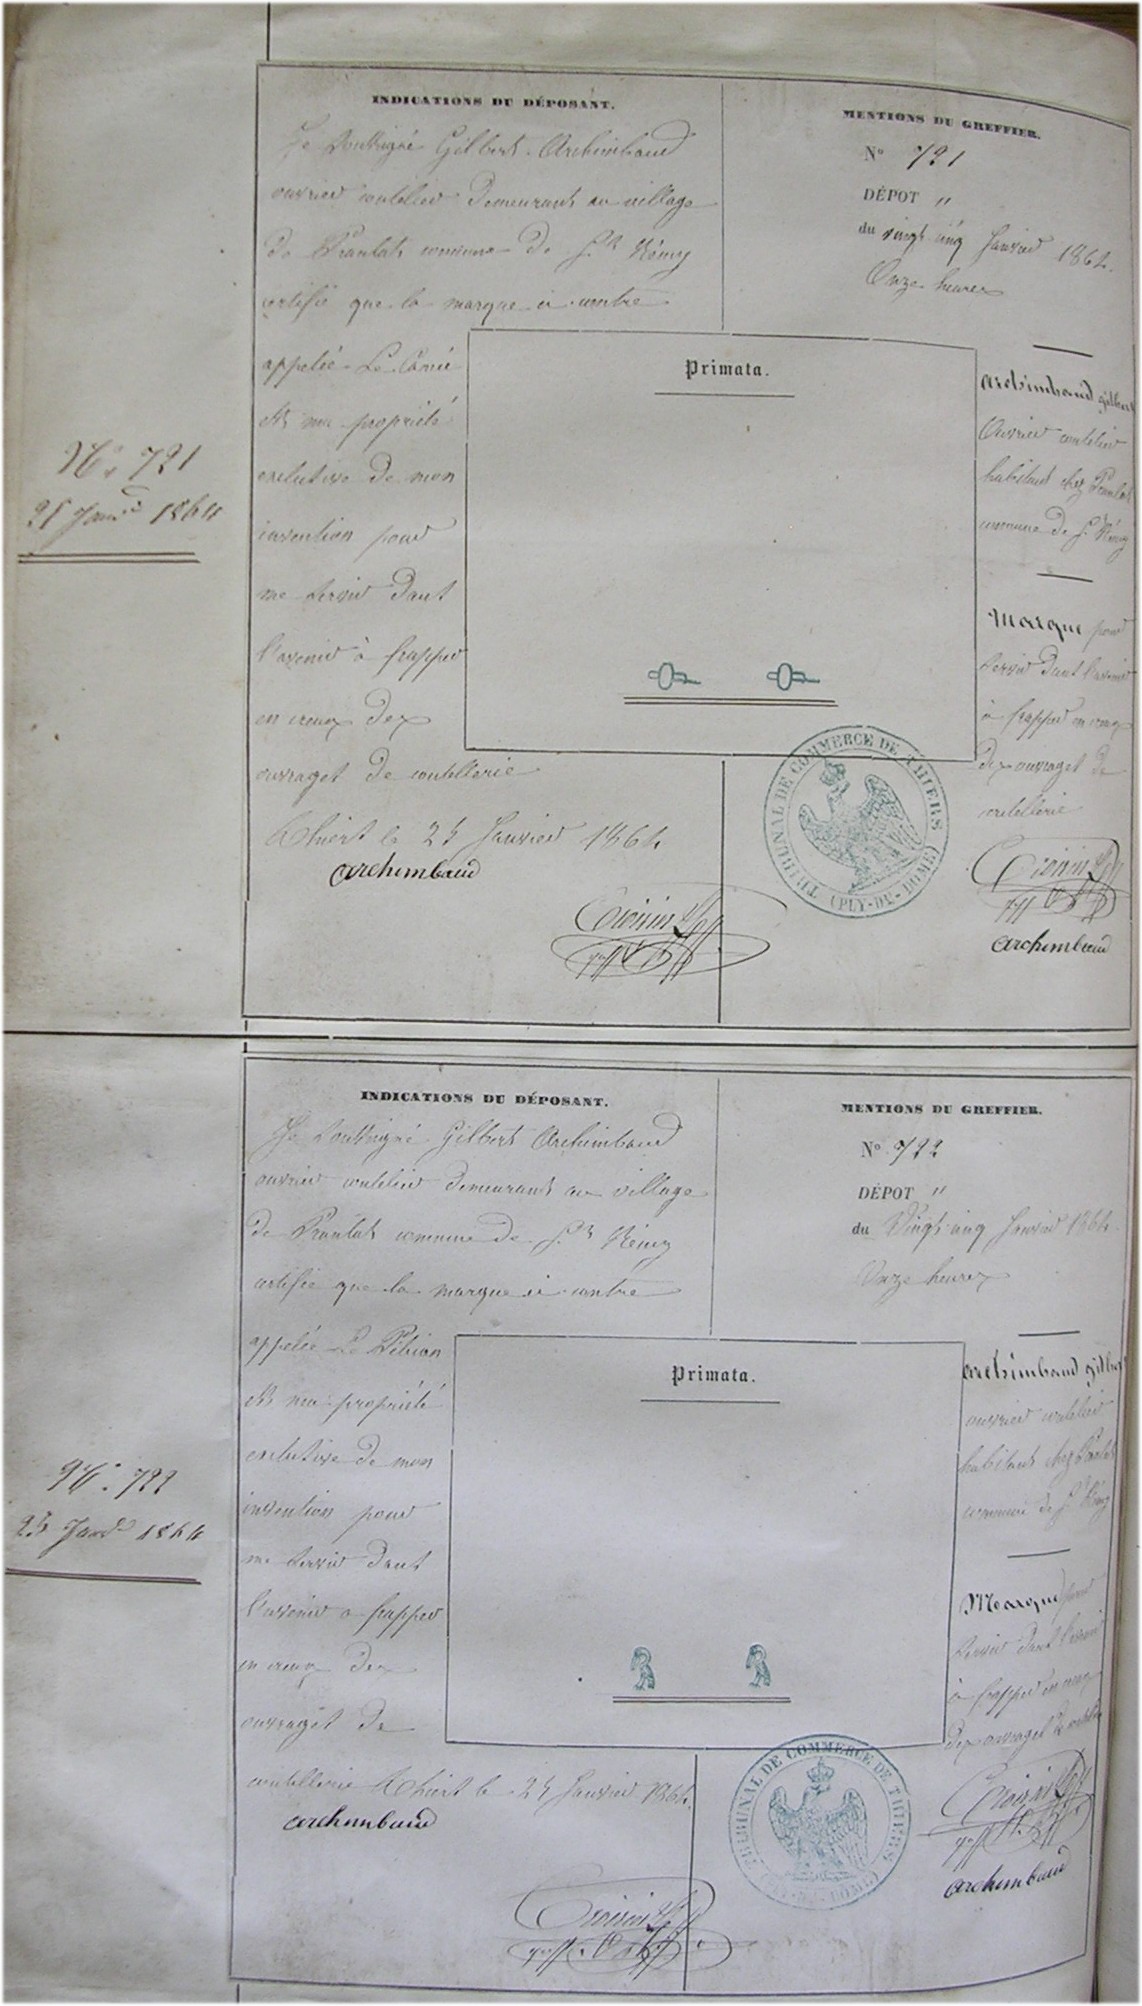 INDICATIONS DU DÉPOSANT.
Je Soussigné Gilbert Archimbaud
ouvrier coutelier demeurant au village
de commune de St Rémy
certifie que la marque ci-contre
appelée Le
est ma propriété
exclusive de mon
invention pour
me servir dans
l'avenir à frapper
en creux des
ouvrages de coutellerie
Thiers le 25 Janvier 1864
archimbaud
MENTIONS DU GREFFIER.
No 721
DÉPOT "
du vingt cinq Janvier 1864.
Onze heures
Primata.
archimbaud gilbert
Ouvrier coutelier
habitant chez
commune de St Rémy
Marque pour
servir dans l'avenir
à frapper en creux
des ouvrages de
coutellerie
archimbaud
TRIBUNAL DE COMMERCE DE THIERS
(PUY-DE-DOME)
No. 721
25 Janv. 1864
INDICATIONS DU DÉPOSANT.
Je Soussigné Gilbert Archimbaud
ouvrier coutelier demeurant au village
de commune de St Rémy
certifie que la marque ci-contre
appelée Le
est ma propriété
exclusive de mon
invention pour
me servir dans
l'avenir à frapper
en creux des
ouvrages de
coutellerie Thiers le 25 Janvier 1864.
archimbaud
MENTIONS DU GREFFIER.
No 722
DÉPOT "
du Vingt cinq Janvier 1864.
Onze heures
Primata.
archimbaud gilbert
ouvrier coutelier
habitant chez
commune de St Rémy
Marque pour
servir dans l'avenir
à frapper en creux
des ouvrages de coutellerie
archimbaud
TRIBUNAL DE COMMERCE DE THIERS
(PUY-DE-DOME)
No. 722
25 Janv. 1864